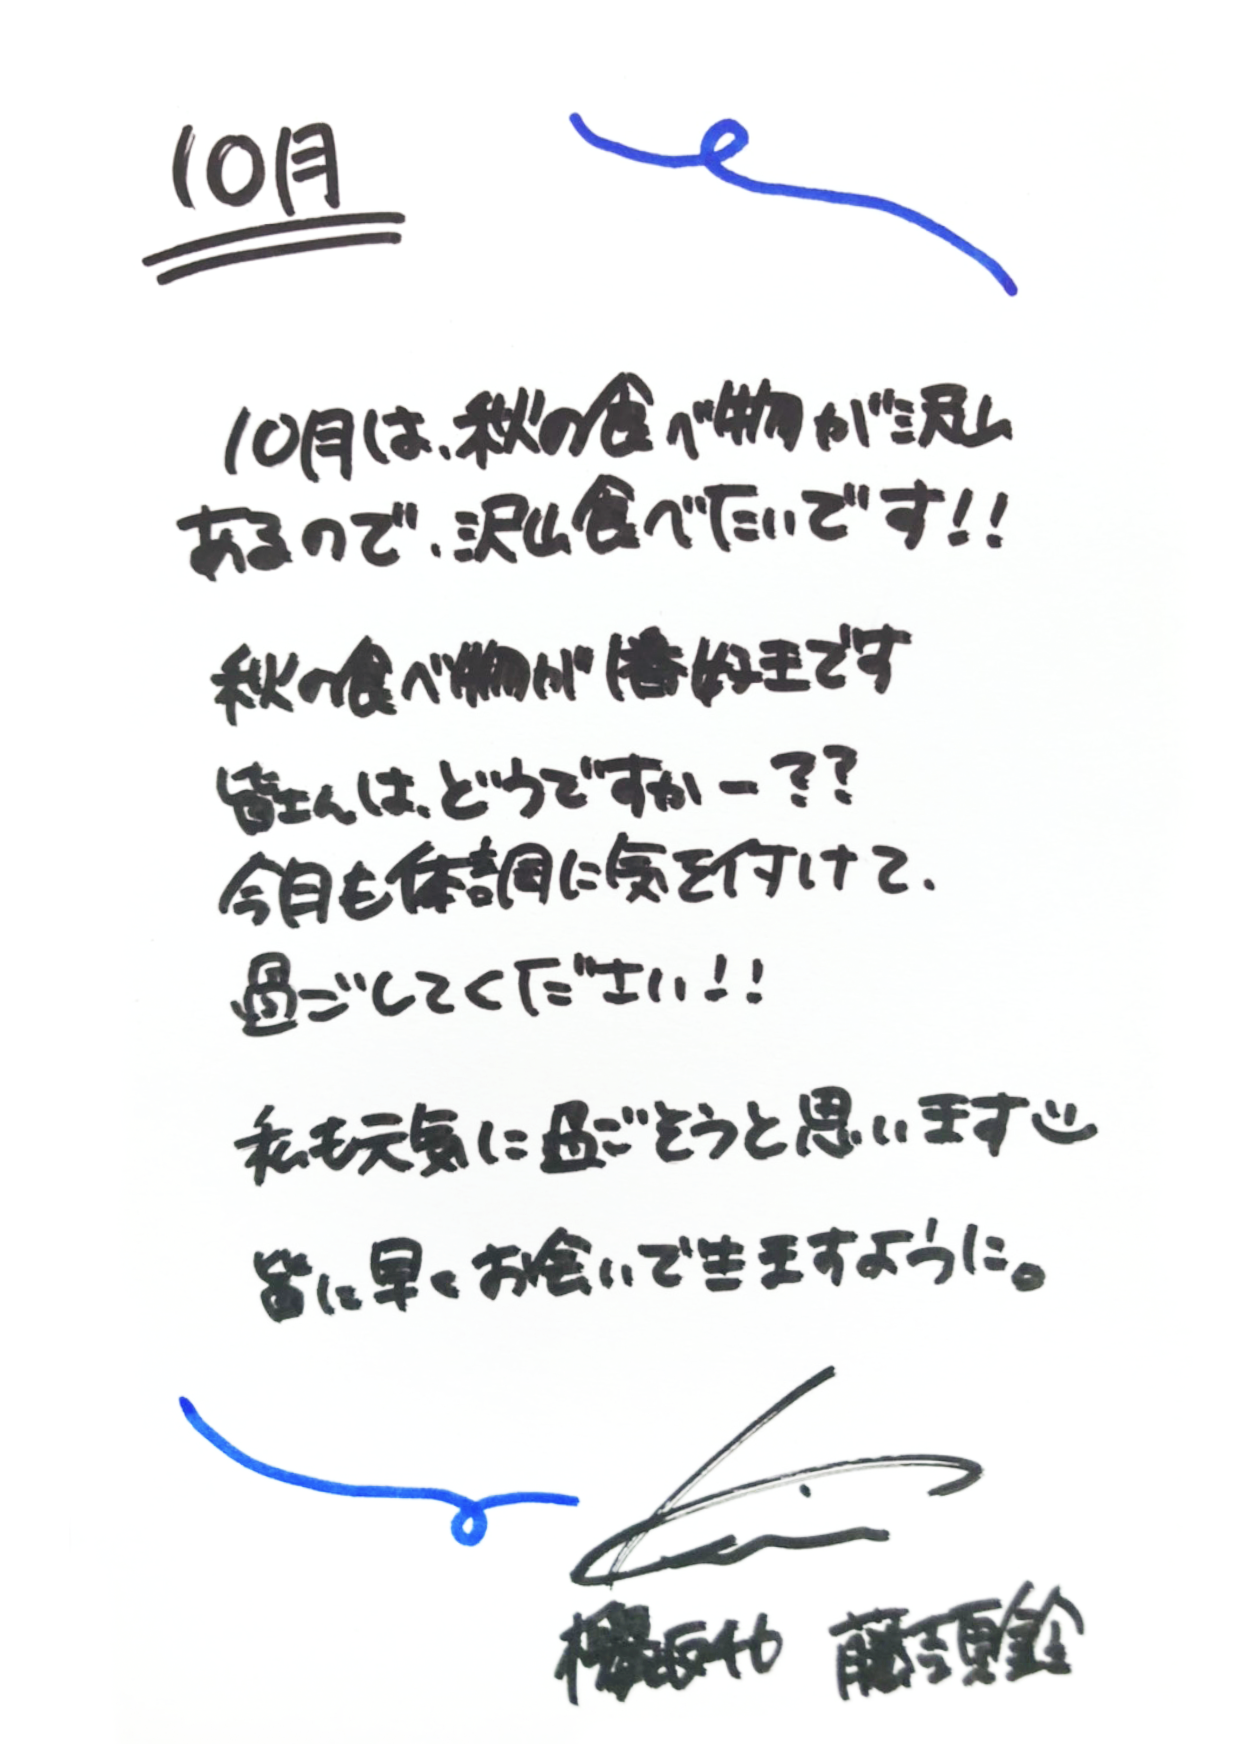 10月
10月は、秋の食べ物が沢山
あるので、沢山食べたいです!!
秋の食べ物が1番好きです
皆さんは、どうですかー??
今月も体調に気を付けて、
過ごしてください!!
私も元気に過ごそうと思います
皆に早くお会いできますように。
欅坂46 藤吉夏鈴